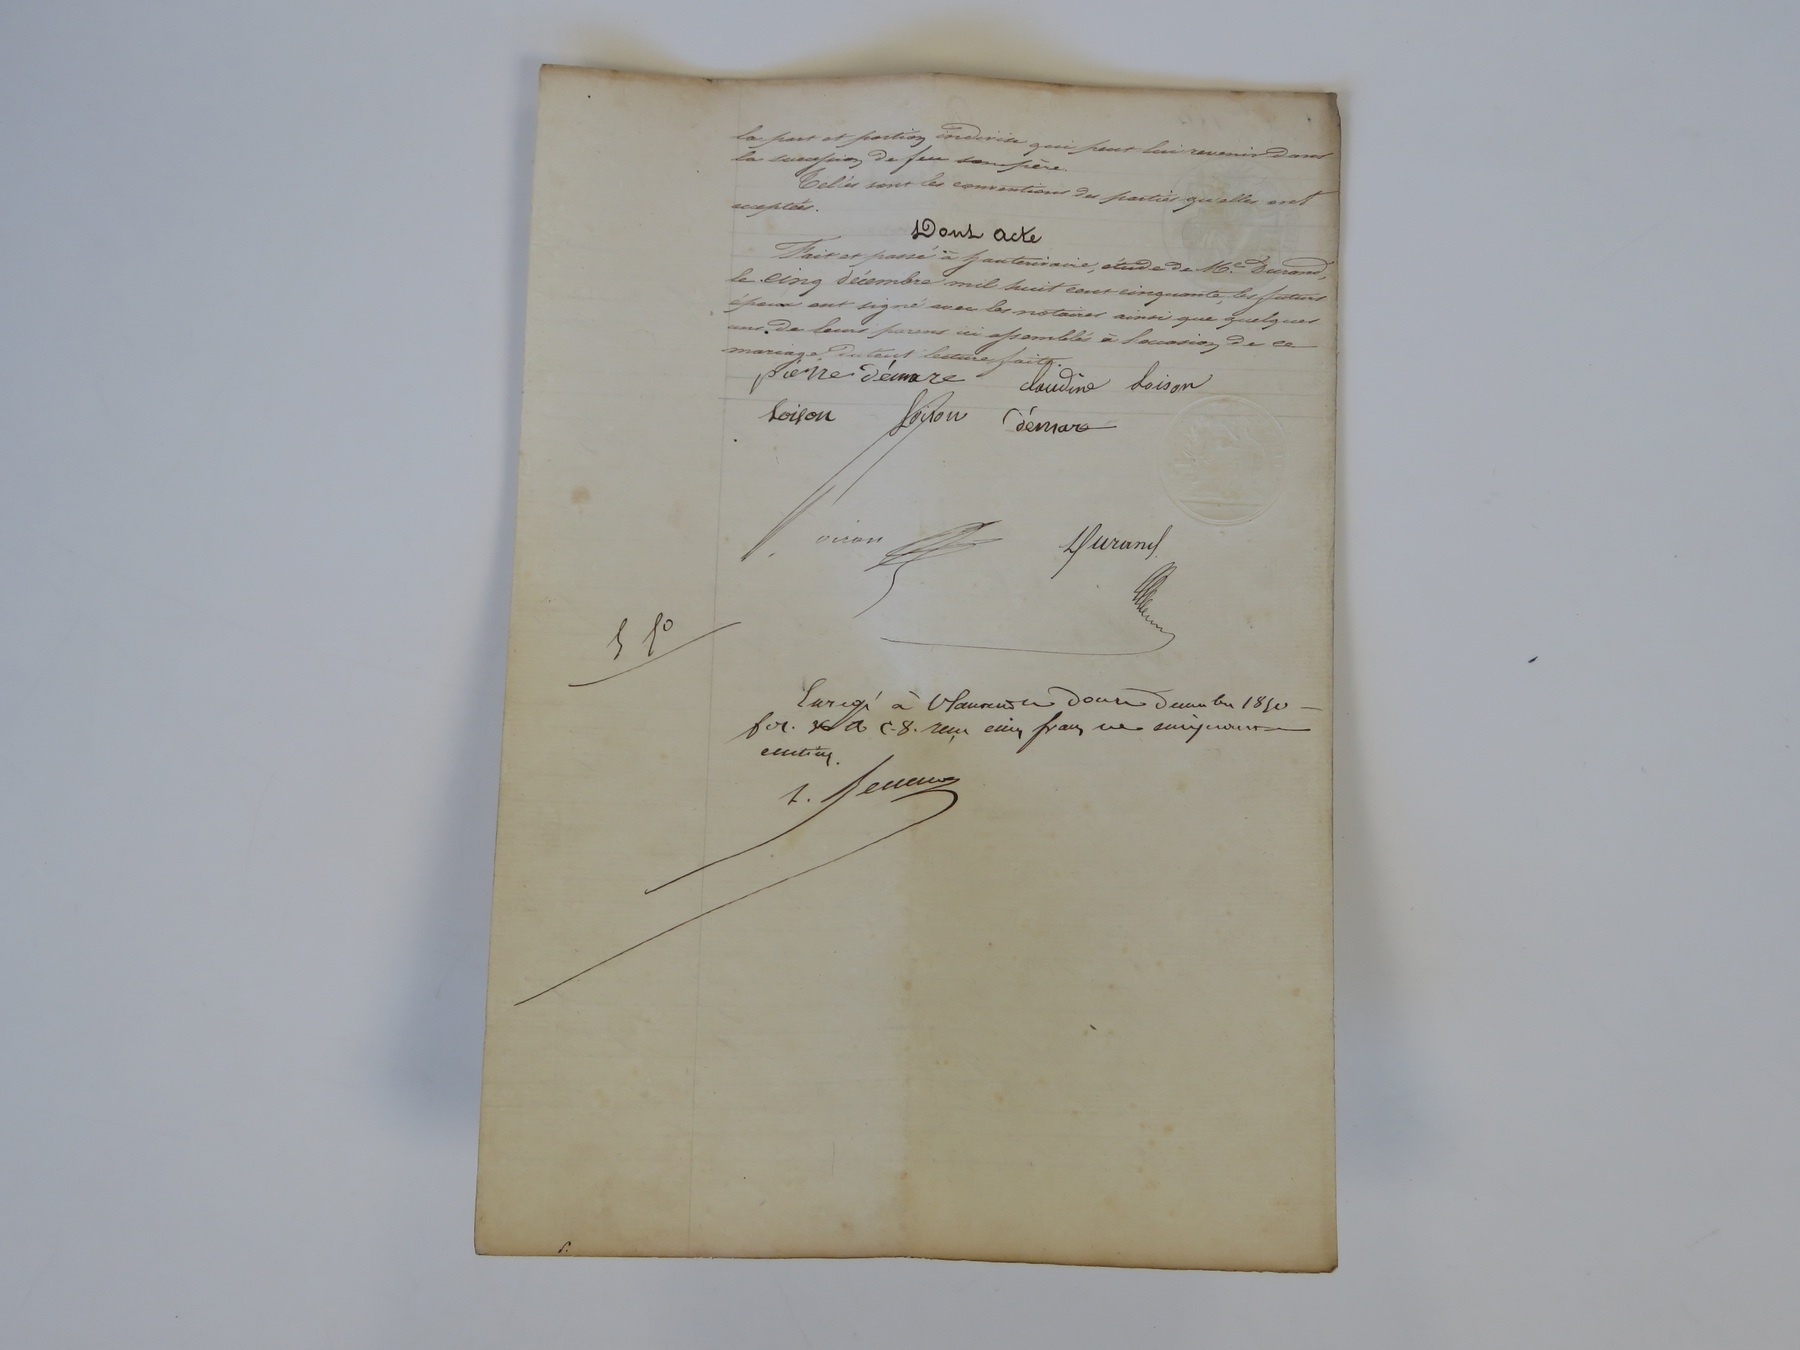 la part et portion indivise qui peut lui revenir dans
la succession de feu son père.
Telles sont les conventions des parties qu'elles ont
aceptées.
Dont acte
Fait et passé à hauterivoire, étude de Me Durand,
le cinq décembre mil huit cent cinquante, les futurs
époux ont signé avec les notaires ainsi que quelques
uns de leurs parens ici assemblés à l'occasion de ce
mariage, du tout lecture faite.
pierre démare claudine Loison
Loison Loison démare
Durand
5 50
Enregé à St Laurent le douze décembre 1850
fol. c. 8. reçu cinq francs cinquante
centimes.